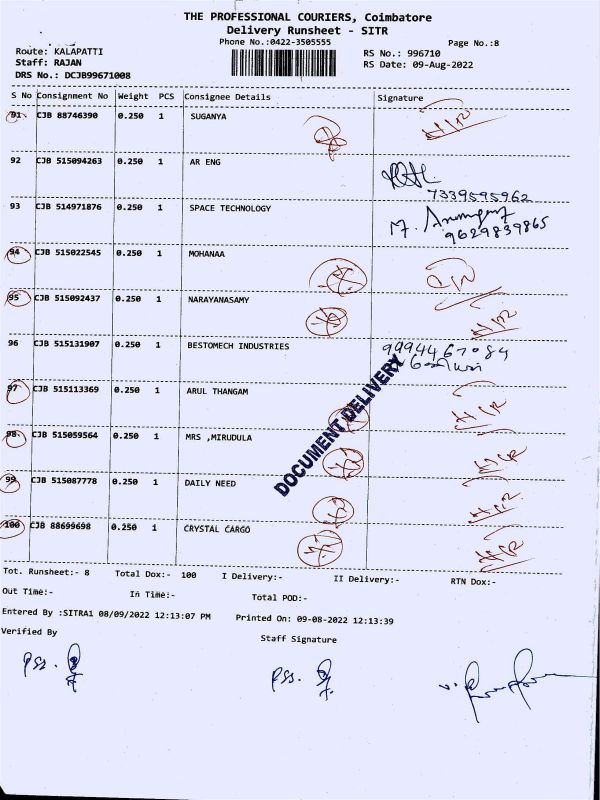 THE PROFESSIONAL COURIERS, Coimbatore
Delivery Runsheet - SITR
Phone No.:0422-3505555 Page No.:8
Route: KALAPATTI RS No.: 996710
Staff: RAJAN RS Date: 09-Aug-2022
DRS No.: DCJB99671008
S No Consignment No Weight PCS Consignee Details Signature
91 CJB 88746390 0.250 1 SUGANYA
92 CJB 515094263 0.250 1 AR ENG
7339595962
93 CJB 514971876 0.250 1 SPACE TECHNOLOGY
9629839865
94 CJB 515022545 0.250 1 MOHANAA
95 CJB 515092437 0.250 1 NARAYANASAMY
96 CJB 515131907 0.250 1 BESTOMECH INDUSTRIES 9994467084
97 CJB 515113369 0.250 1 ARUL THANGAM
DOCUMENT DELIVERY
98 CJB 515059564 0.250 1 MRS ,MIRUDULA
99 CJB 515087778 0.250 1 DAILY NEED
100 CJB 88699698 0.250 1 CRYSTAL CARGO
Tot. Runsheet:- 8 Total Dox:- 100 I Delivery:- II Delivery:- RTN Dox:-
Out Time:- In Time:- Total POD:-
Entered By :SITRA1 08/09/2022 12:13:07 PM Printed On: 09-08-2022 12:13:39
Verified By Staff Signature